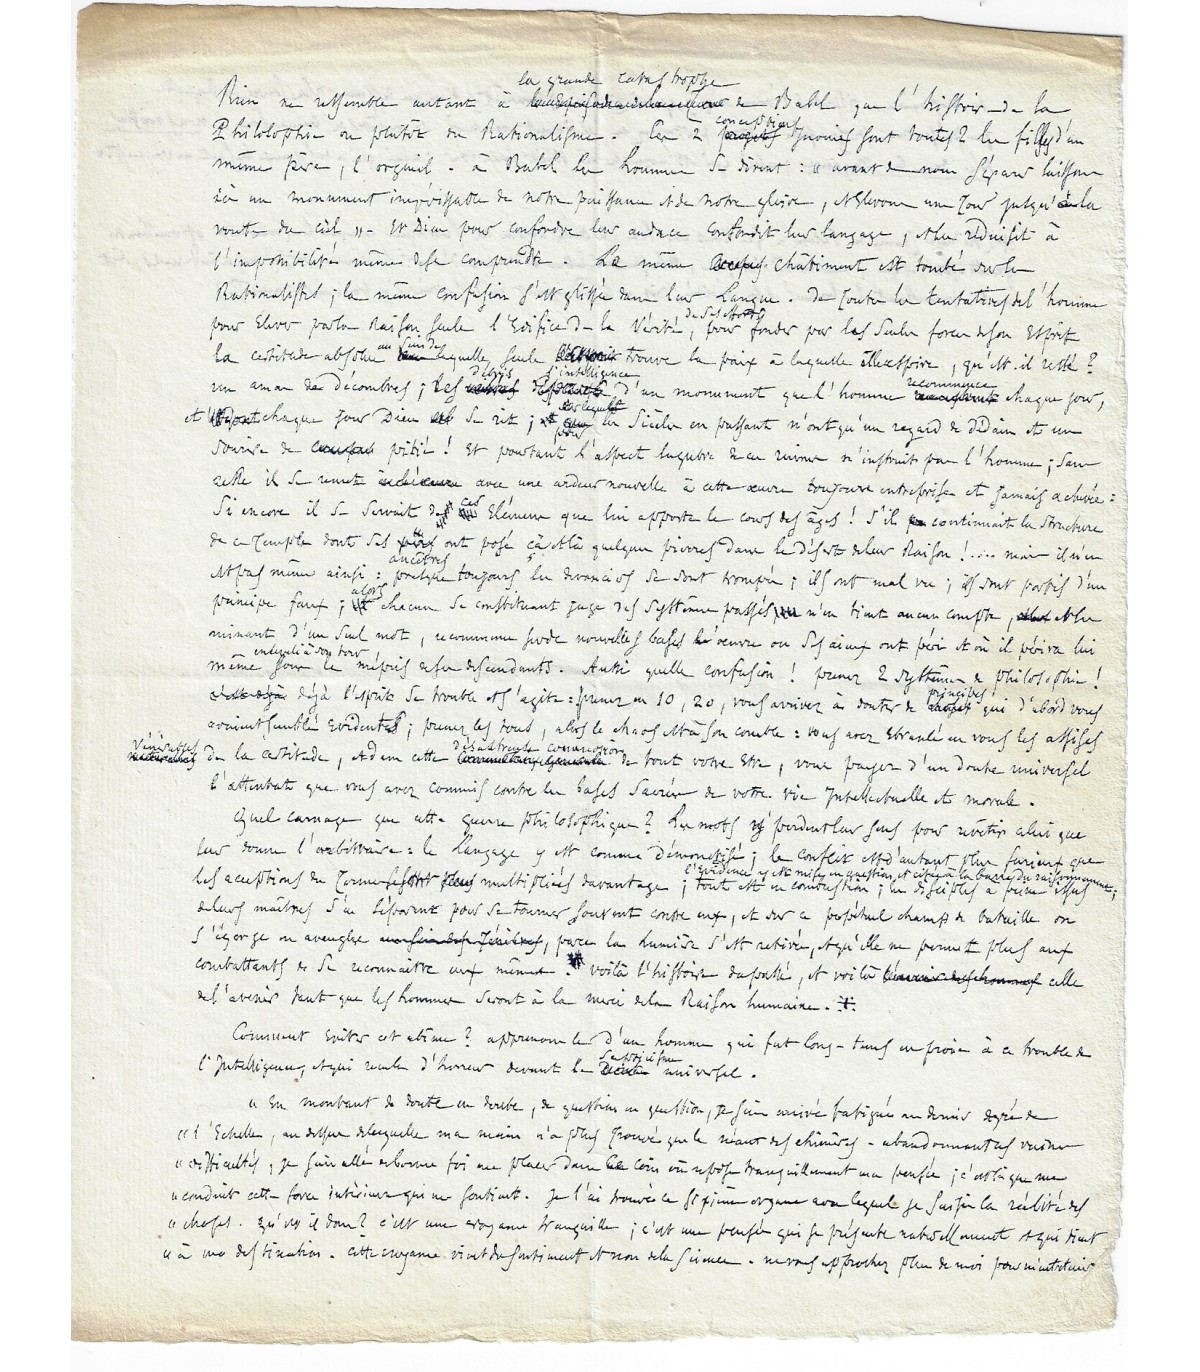 la grande catastrophe
Rien ne ressemble autant à de Babel que l'histoire de la
Philosophie ou plutôt du Rationalisme. Ces 2 conceptions sont toutes 2 les filles d'un
même père, l'orgueil. à Babel les hommes se dirent : « avant de nous séparer laissons
ici un monument impérissable de notre puissance et de notre gloire, élevons une Tour jusqu'à la
voute du ciel ». Et Dieu pour confondre leur audace confondit leur langage, et les réduisit à
l'impossibilité même de se comprendre. Le même châtiment est tombé sur les
Rationalistes ; la même confusion s'est glissée dans leur Langue. De toutes les tentatives de l'homme
pour Elever par la Raison seule l'Edifice de la Vérité, de ses efforts pour fonder par les seules forces de son Esprit
la certitude absolue au sein de laquelle seule trouve la paix à laquelle il aspire, qu'est-il resté ?
un amas de décombres ; les débris d'un monument que l'homme recommence chaque jour,
et dont chaque jour Dieu se rit ; pour lesquels les Siècles en passant n'ont qu'un regard de dédain et un
sourire de pitié ! Et pourtant l'aspect lugubre de ces ruines n'instruit pas l'homme ; sans
cesse il se remet avec une ardeur nouvelle à cette œuvre toujours entreprise et jamais achevée :
Si encore il se servait de ces Eléments que lui apporte le cours des âges ! S'il continuait la structure
de ce Temple dont ses ancêtres ont posé çà et là quelques pierres dans le désert de leur Raison !.... mais il n'en
est pas même ainsi : presque toujours les devanciers se sont trompés ; ils ont mal vu ; ils sont partis d'un
principe faux ; alors chacun se constituant juge des systèmes passés n'en tient aucun compte, et les
ruinant d'un seul mot, recommence sur de nouvelles bases l'œuvre où ses aïeux ont péri et où il périra lui
même enseveli à son tour sous le mépris de ses descendants. Aussi quelle confusion ! prenez 2 systèmes de philosophie !
déjà l'esprit se trouble et s'agite : prenez en 10, 20, vous arrivez à douter de principes qui d'abord vous
avaient semblé évidents ; prenez les tous, alors le chaos est à son comble : vous avez Ebranlé en vous les assises
de la certitude, et dans cette désastreuse commotion de tout votre Etre, vous payez d'un doute universel
l'attentat que vous avez commis contre les bases sacrées de votre vie Intellectuelle et morale.
Quel carnage que cette guerre philosophique ? Les mots y perdent leur sens pour revêtir celui que
leur donne l'arbitraire : le langage y est comme démonétisé ; le conflit est d'autant plus furieux que
les acceptions du Terme multipliées davantage ; l'évidence y est mise en question, et citée à la barre du raisonnement ;
tout est en convulsion ; les disciples à peine issus
de leurs maîtres s'en séparent pour se tourner souvent contre eux, et sur ce perpétuel champ de bataille on
s'égorge en aveugles, parce la lumière s'est retirée, et qu'elle ne permet plus aux
combattants de se reconnaitre eux mêmes. Voilà l'histoire du passé, et voilà celle
de l'avenir tant que les hommes seront à la merci de la Raison humaine.
Comment Eviter cet abime ? apprenons le d'un homme qui fut long-temps en proie à ce trouble de
l'Intelligence, et qui recula d'horreur devant le Scepticisme universel.
« En montant de doute en doute, de question en question, je suis arrivé fatigué au dernier degré de
« l'Echelle, au dessus de laquelle ma main n'a plus trouvé que le néant des chimères. abandonnant ces vaines
« difficultés, je suis allé de bonne foi me placer dans le coin où repose tranquillement ma pensée ; c'est là que me
« conduit cette force intérieure qui me soutient. Je l'ai trouvé ce sixième organe avec lequel je saisis la réalité des
« choses. Qu'est-il donc ? c'est une croyance tranquille ; c'est une pensée qui se présente naturellement et qui tient
« à ma destination. Cette croyance vient du sentiment et non de la science. ne vous approchez plus de moi pour m'entretenir